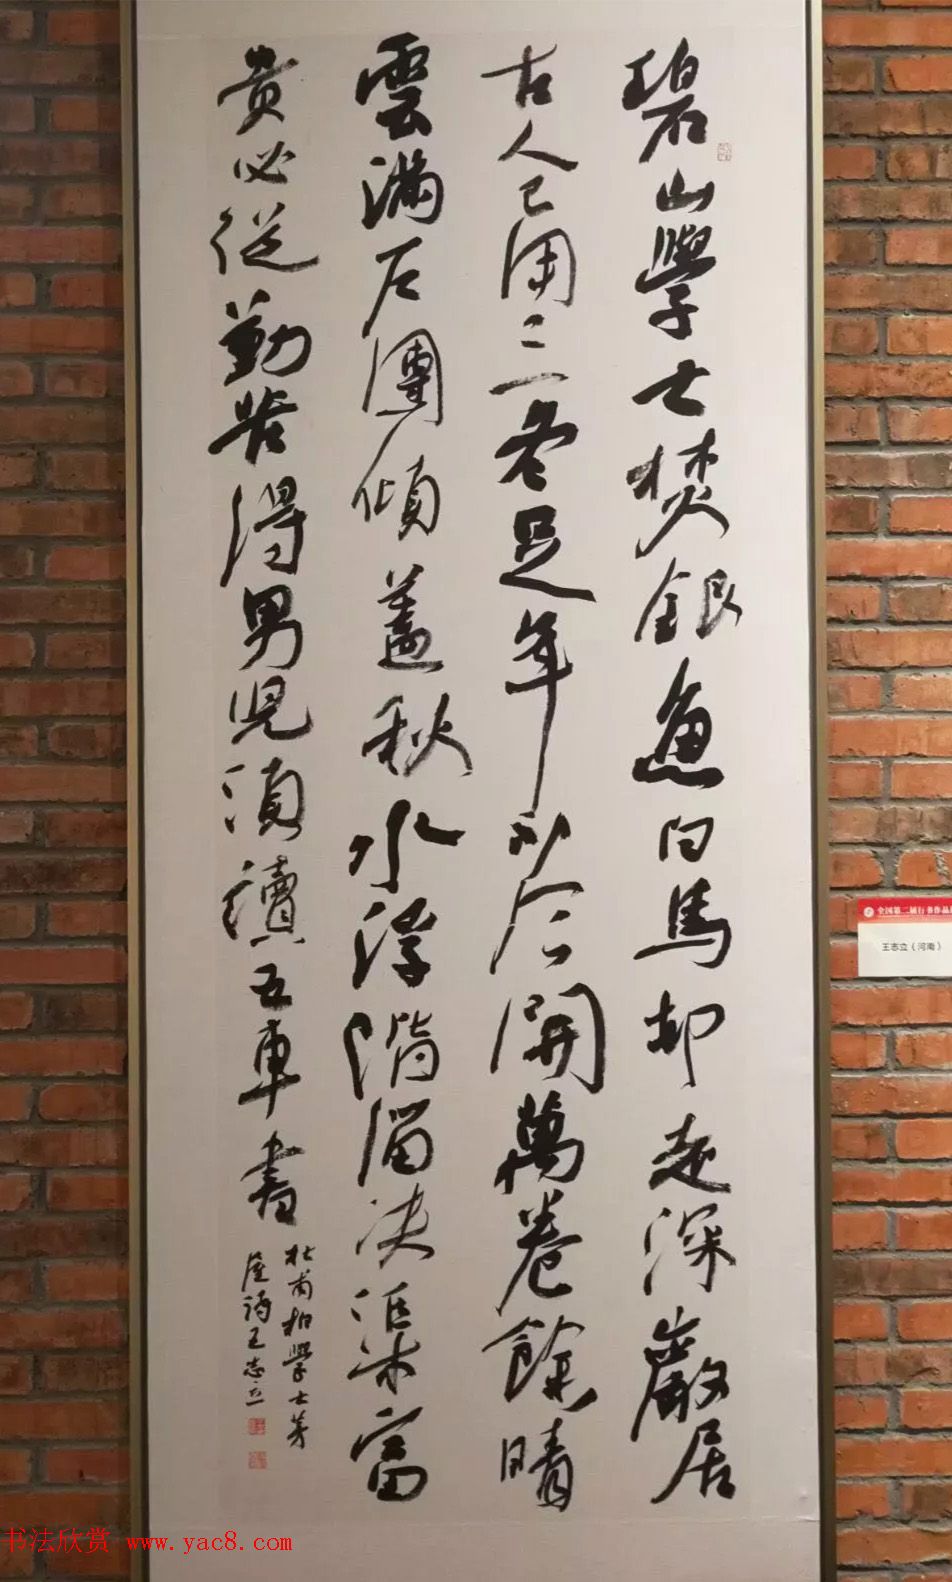 碧山學士焚銀魚白馬却走深巖居
古人已用三冬足年少今開萬卷餘晴
雲滿戶團傾蓋秋水浮階溜決渠富
貴必從勤苦得男兒須讀五車書
杜甫柏學士茅
屋詩王志立
全国第二届行书作品
王志立（河南）
书法欣赏 www.yac8.com